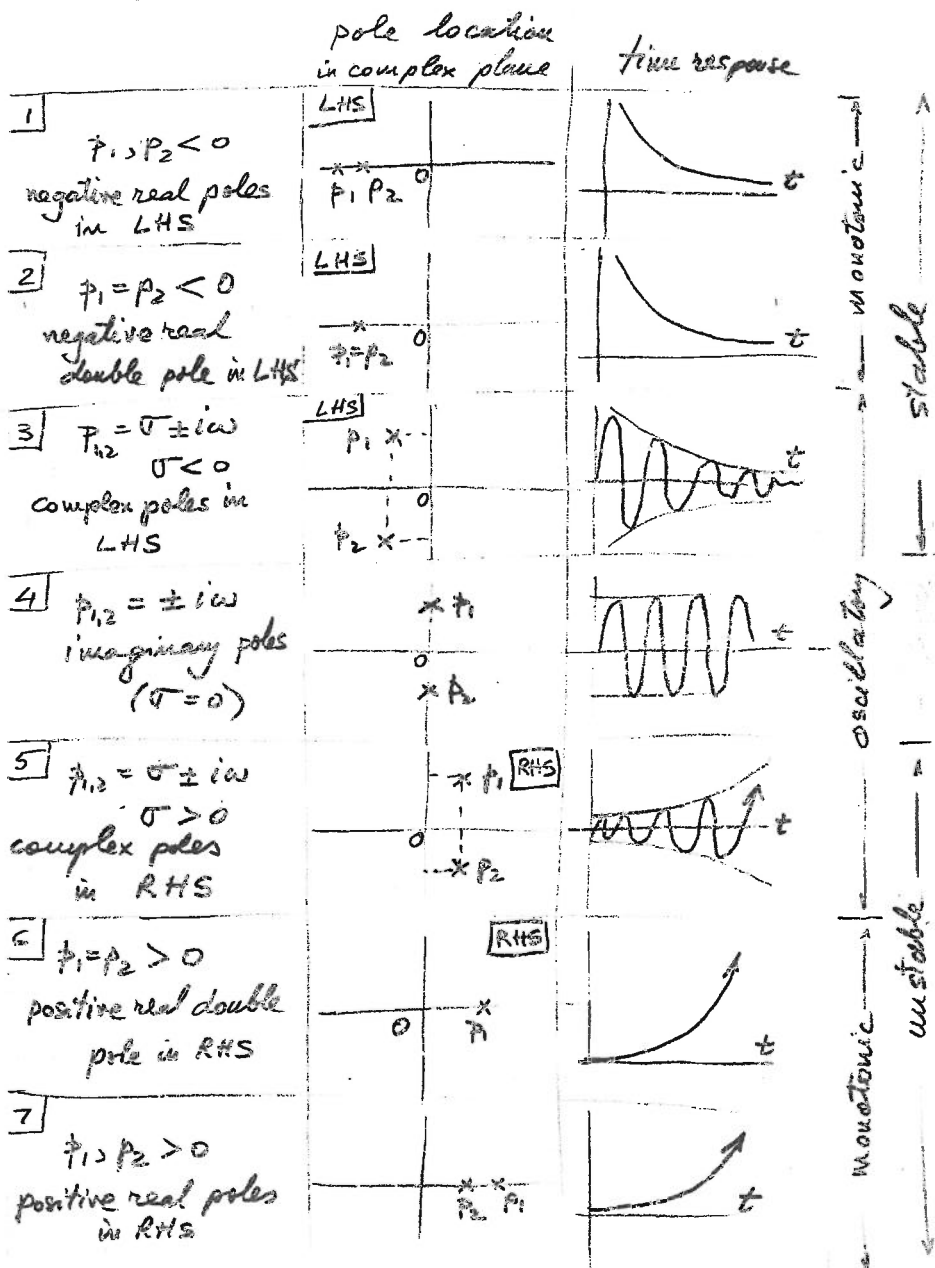 pole location
in complex plane
time response
1
p₁, p₂ < 0
negative real poles
in LHS
LHS
p₁ p₂
0
t
2
p₁ = p₂ < 0
negative real
double pole in LHS
LHS
p₁=p₂
0
t
3
p₁,₂ = σ ± iω
σ < 0
complex poles in
LHS
LHS
p₁
0
p₂
t
4
p₁,₂ = ± iω
imaginary poles
(σ = 0)
p₁
0
p₂
t
5
p₁,₂ = σ ± iω
σ > 0
complex poles
in RHS
p₁
RHS
0
p₂
t
6
p₁ = p₂ > 0
positive real double
pole in RHS
RHS
0
p₁
t
7
p₁, p₂ > 0
positive real poles
in RHS
p₂ p₁
t
monotonic
oscillatory
monotonic
stable
unstable